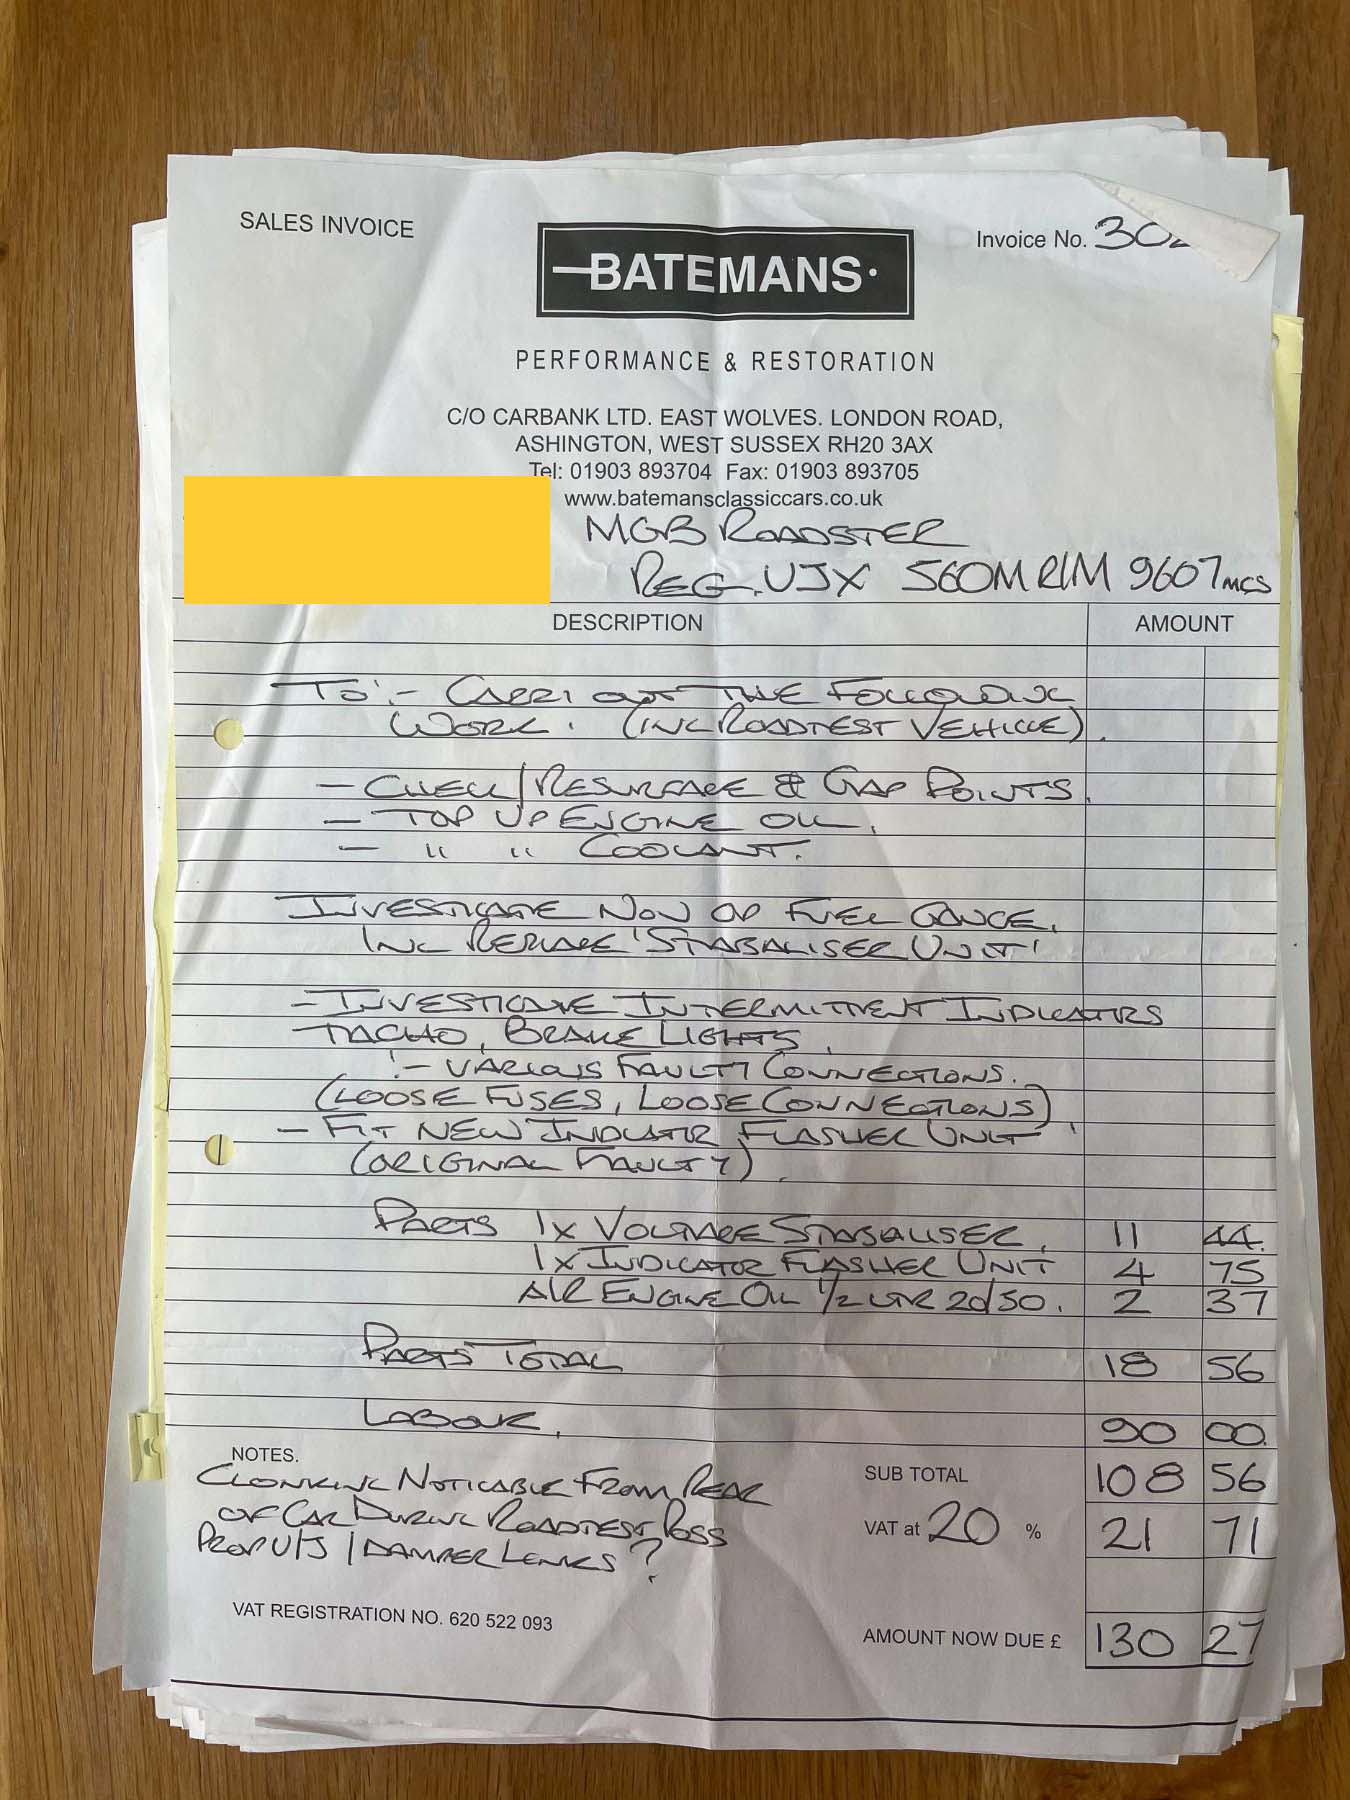 SALES INVOICE
Invoice No. 302
BATEMANS
PERFORMANCE & RESTORATION
C/O CARBANK LTD. EAST WOLVES. LONDON ROAD,
ASHINGTON, WEST SUSSEX RH20 3AX
Tel: 01903 893704 Fax: 01903 893705
www.batemansclassiccars.co.uk
MGB ROADSTER
REG. UJX 560M R/M 9607 MLS
DESCRIPTION AMOUNT
TO:- CARRY OUT THE FOLLOWING
WORK. (INC ROADTEST VEHICLE).
- CHECK/RESURFACE & GAP POINTS.
- TOP UP ENGINE OIL.
- " " COOLANT.
INVESTIGATE NON OP FUEL GAUGE.
INC REPLACE 'STABALISER UNIT'
- INVESTIGATE INTERMITTENT INDICATORS
TACHO, BRAKE LIGHTS,
:- VARIOUS FAULTY CONNECTIONS.
(LOOSE FUSES, LOOSE CONNECTIONS)
- FIT NEW INDICATOR FLASHER UNIT
(ORIGINAL FAULTY).
PARTS 1X VOLTAGE STABALISER. 11 44.
1X INDICATOR FLASHER UNIT 4 75
ENGINE OIL 1/2 LTR 20/50. 2 37
PARTS TOTAL 18 56
LABOUR, 90 00.
NOTES.
CLONKING NOTICABLE FROM REAR
OF CAR DURING ROADTEST, POSS
PROP U/J / DAMPER LINKS?
SUB TOTAL 108 56
VAT at 20 % 21 71
VAT REGISTRATION NO. 620 522 093
AMOUNT NOW DUE £ 130 27